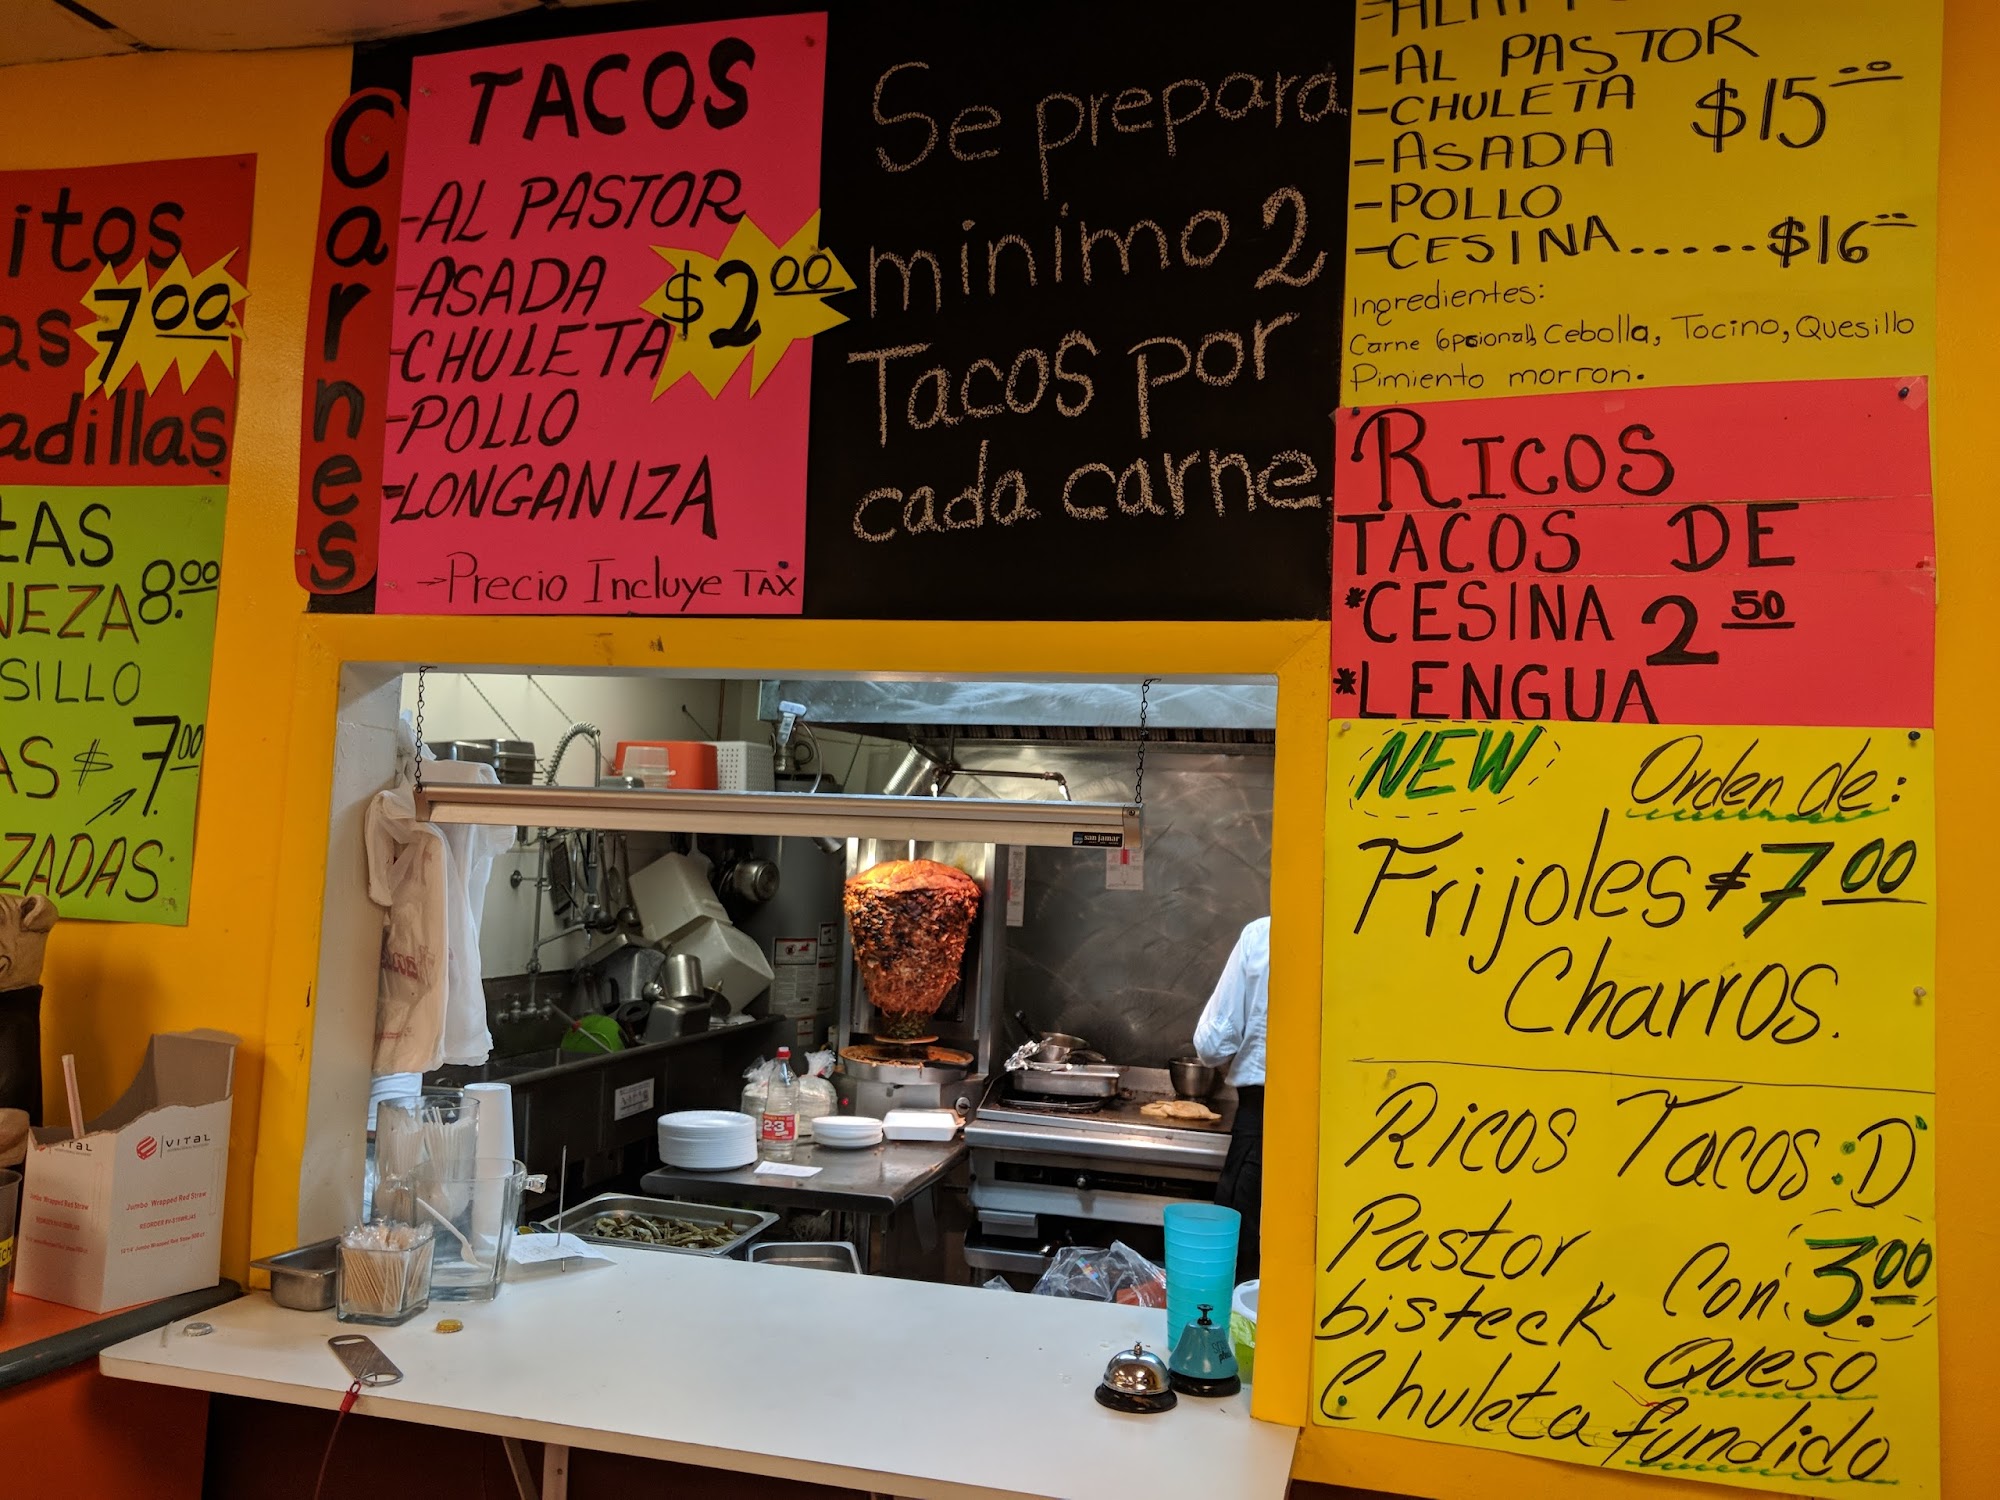 7.00
adillas
8.00
SILLO
$ 7.00
Carnes
TACOS
-AL PASTOR
-ASADA
-CHULETA
-POLLO
-LONGANIZA
$2.00
→Precio Incluye TAX
Se prepara
minimo 2
Tacos por
cada carne.
-AL PASTOR
-CHULETA $15.00
-ASADA
-POLLO
-CESINA.....$16.00
Ingredientes:
Carne (opcional), Cebolla, Tocino, Quesillo
Pimiento morron.
RICOS
TACOS DE
*CESINA 2 50
*LENGUA
NEW Orden de:
Frijoles $7.00
Charros.
Ricos Tacos :D
Pastor
bisteck
Chuleta
Con: 3.00
Queso
fundido
san jamar
2-3
VITAL
Jumbo Wrapped Red Straw